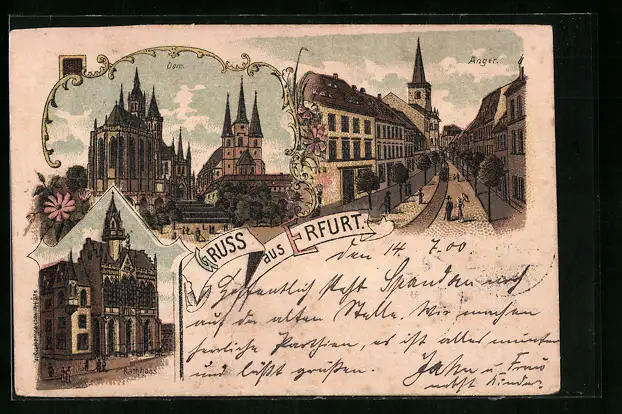 Dom.
Anger.
GRUSS aus ERFURT.
Rathhaus
den 14. 7.00
Hoffentlich steht Spandau noch
auf der alten Stelle. Wir machen
herrliche Parthien, es ist alles munter
und läßt grüßen. Jahn u. Frau
nebst Kinder.